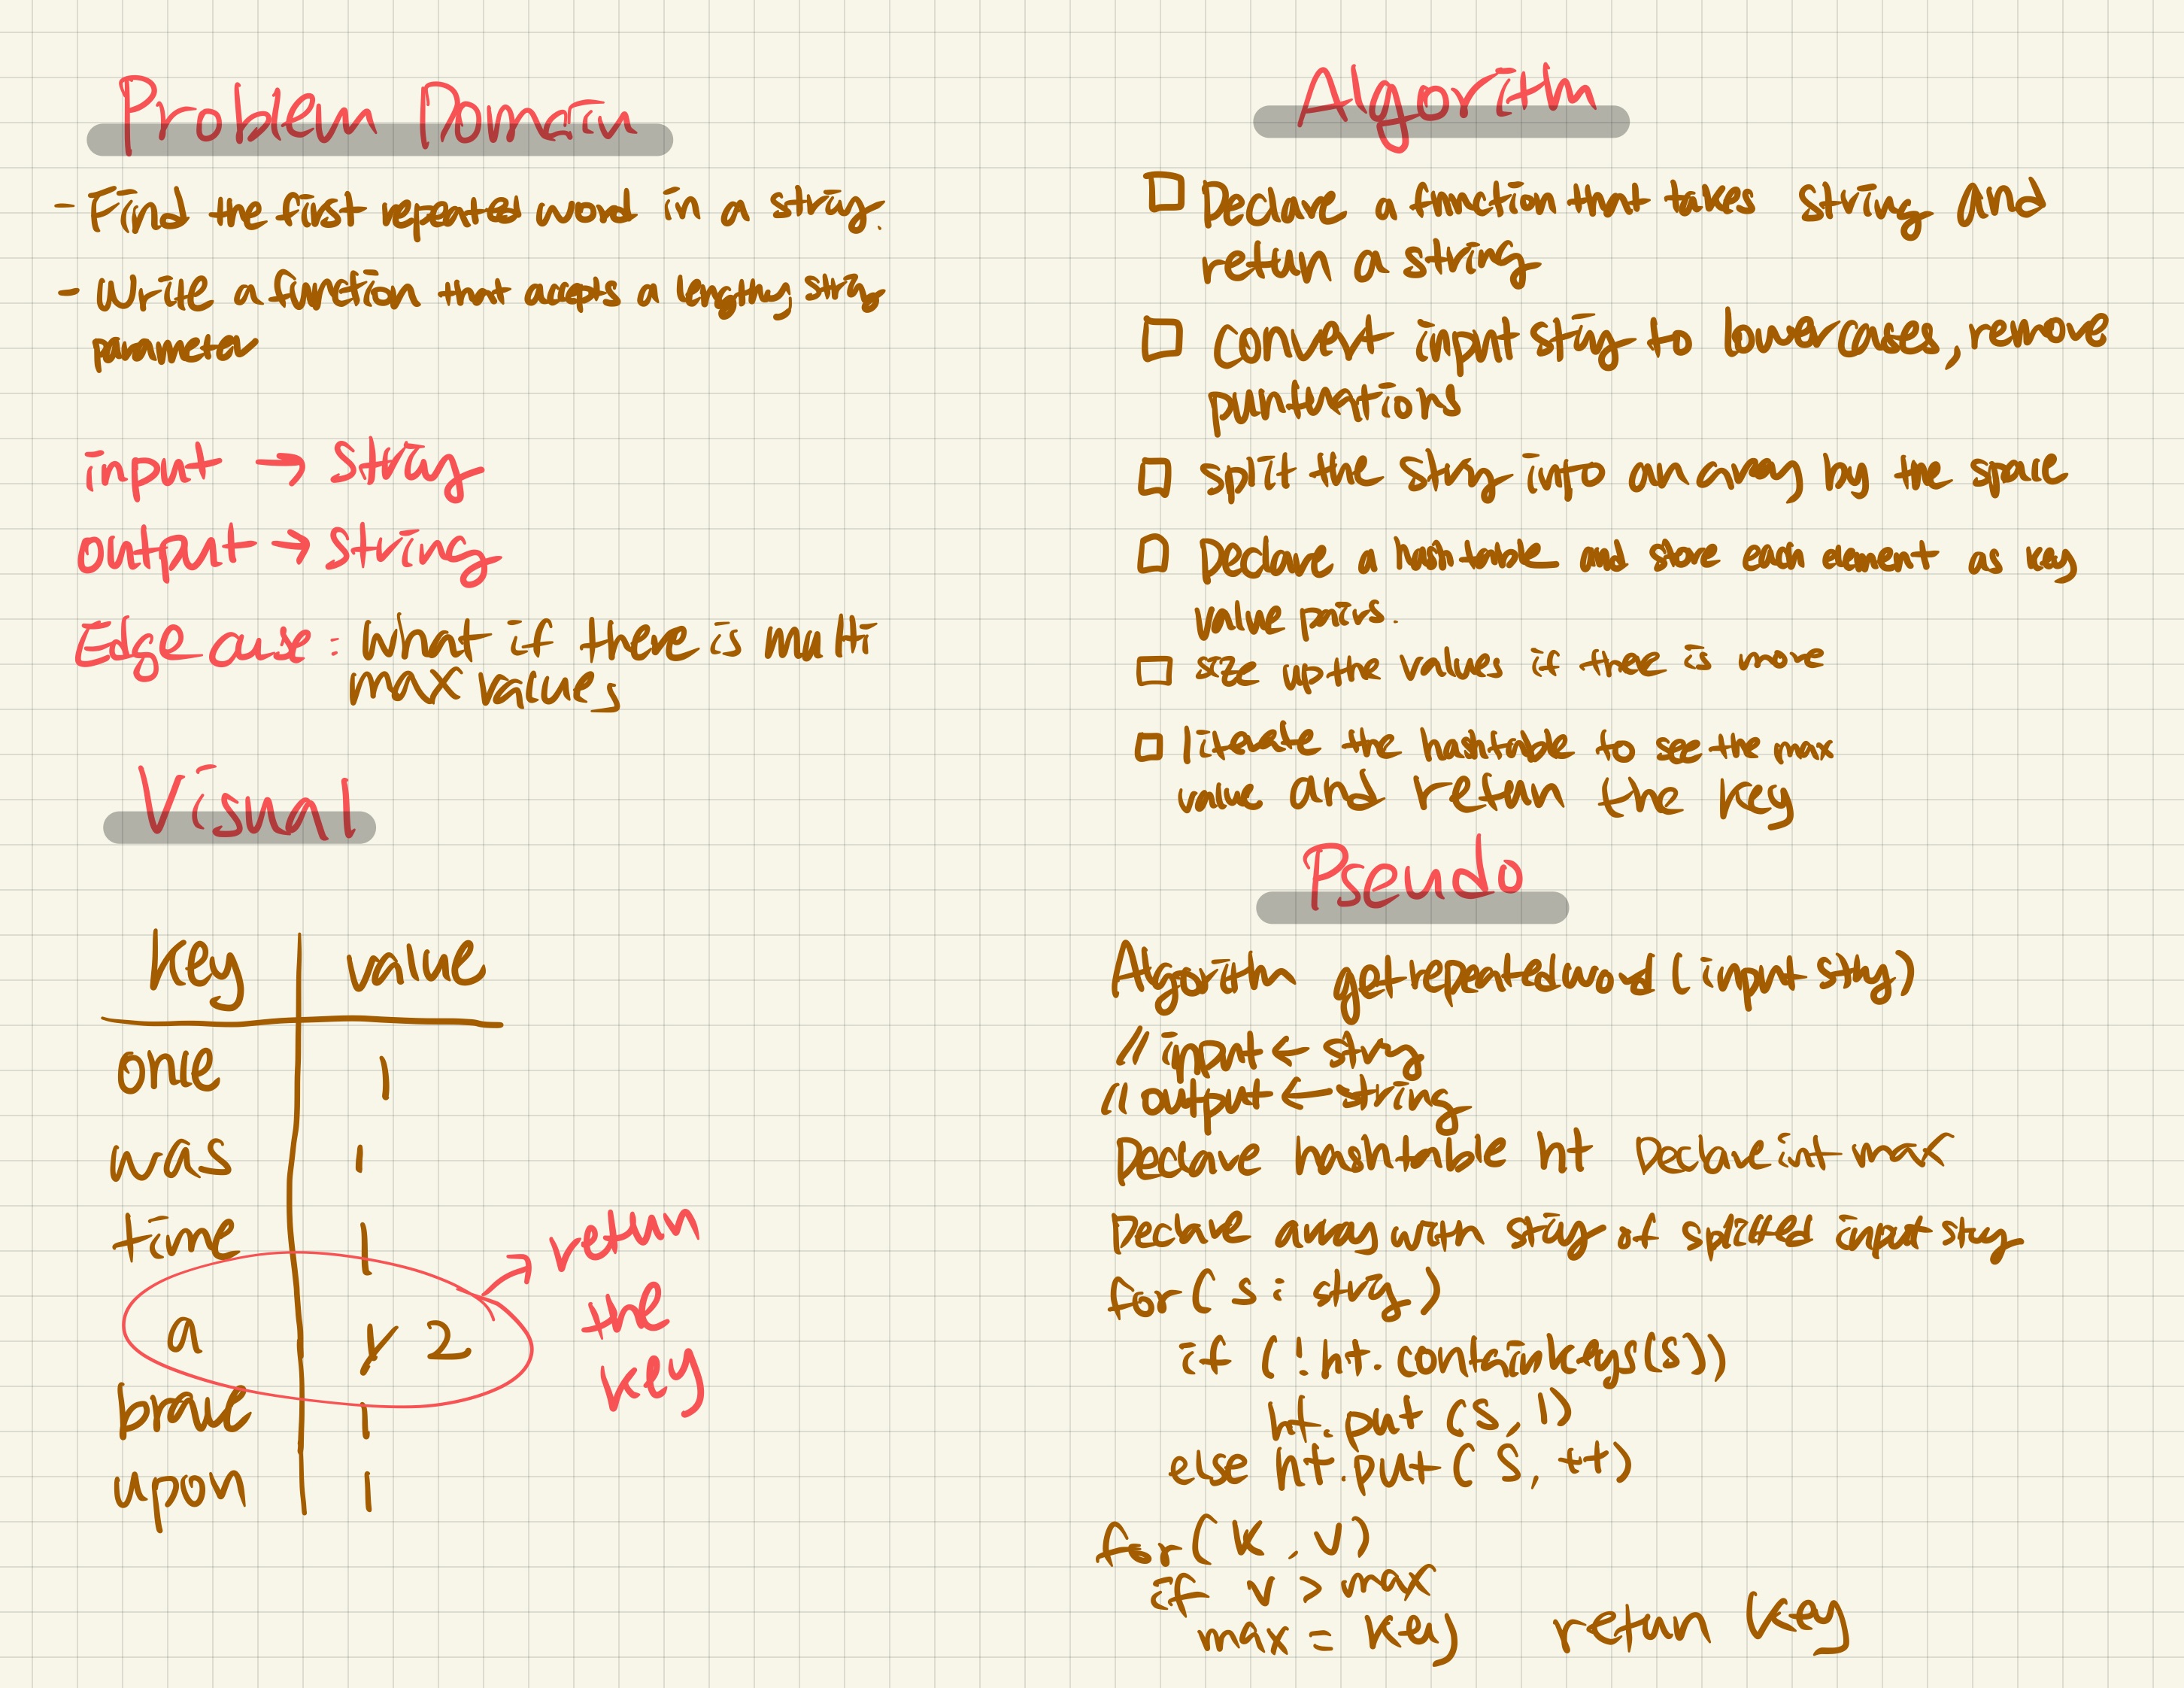 Problem Domain
- Find the first repeated word in a string.
- Write a function that accepts a lengthy string
parameter
input → string
output → string
Edge case: What if there is multi
max values
Visual
key value
once 1
was 1
time 1
a 1 2
brave 1
upon 1
return
the
key
Algorithm
□ Declare a function that takes string and
return a string
□ Convert input string to lowercases, remove
puntuations
□ split the string into an array by the space
□ Declare a hashtable and store each element as key
value pairs.
□ size up the values if there is more
□ literate the hashtable to see the max
value and return the key
Pseudo
Algorithm getrepeatedword (input string)
// input ← string
// output ← string
Declare hashtable ht Declare int max
Declare array with string of splitted input string
for( s : string)
if (!ht.containkeys(s))
ht.put (s, 1)
else ht.put (s, ++)
for( k, v)
if v > max
max = key return key